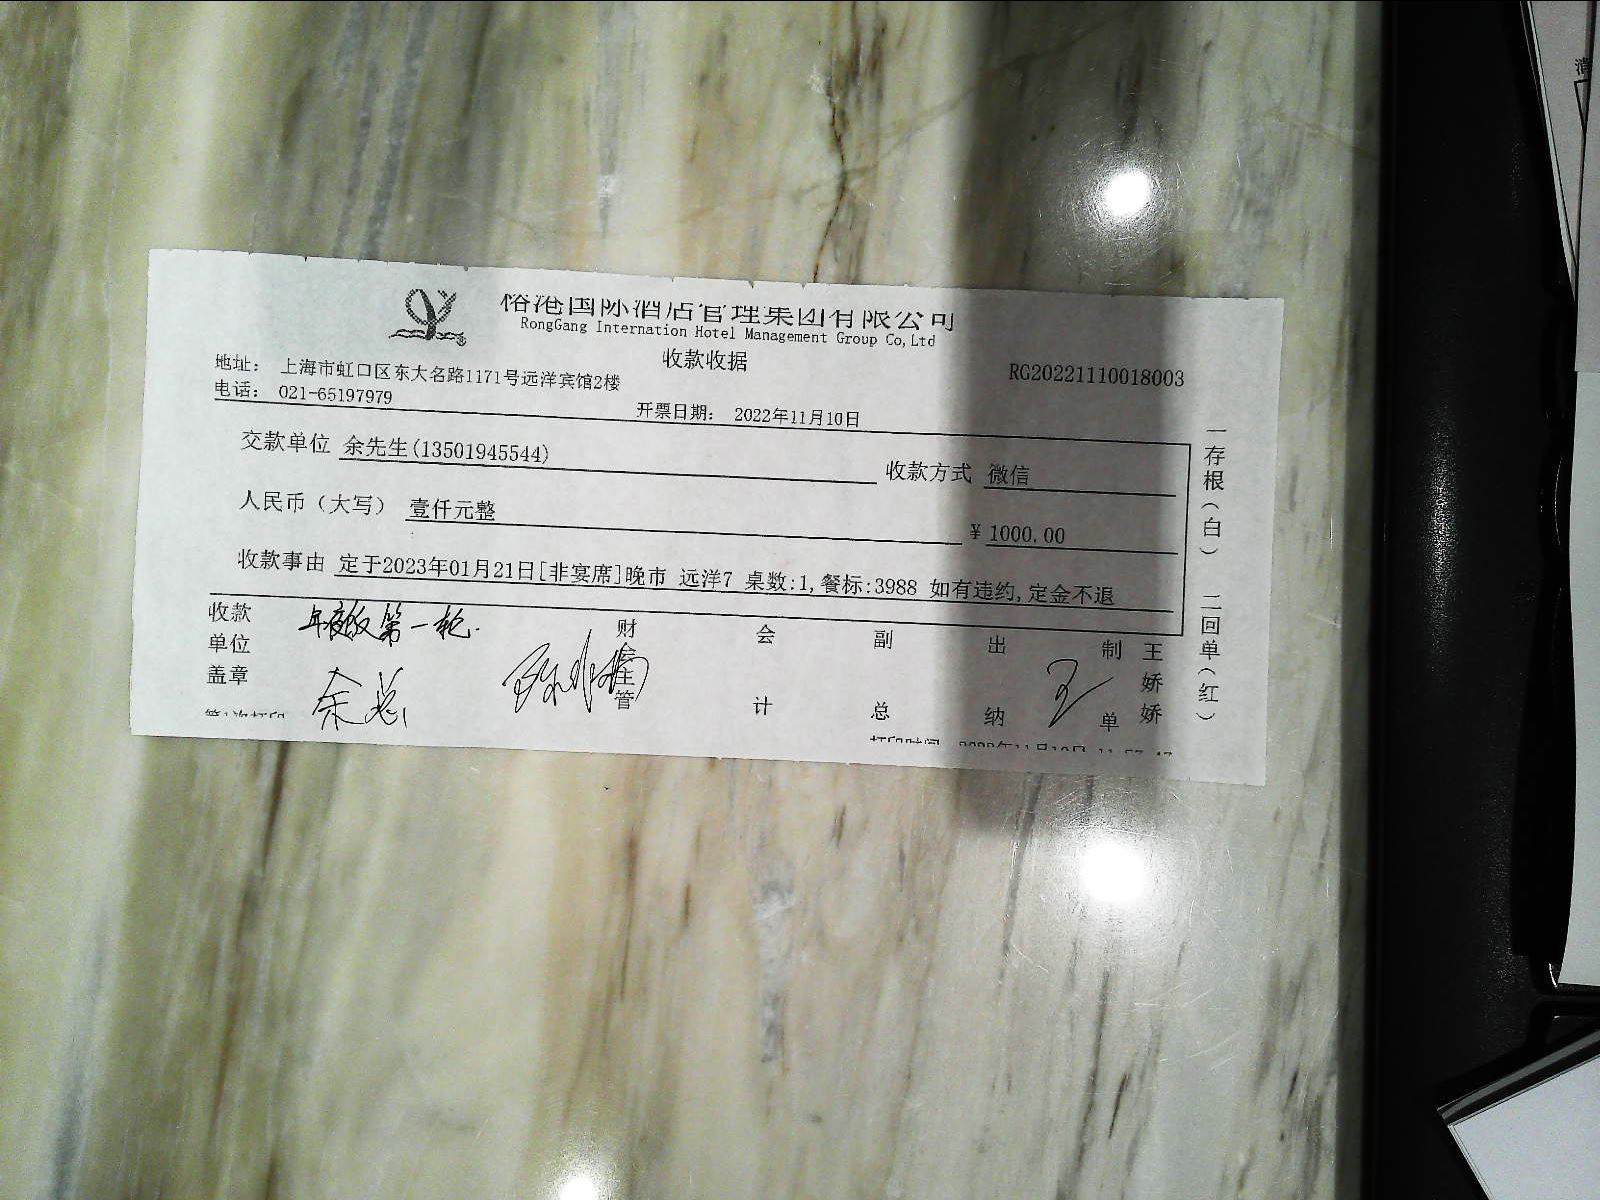 榕港国际酒店管理集团有限公司
RongGang Internation Hotel Management Group Co,Ltd
收款收据
地址： 上海市虹口区东大名路1171号远洋宾馆2楼
RG20221110018003
电话： 021-65197979
开票日期： 2022年11月10日
交款单位 余先生(13501945544)
收款方式 微信
人民币（大写） 壹仟元整
¥ 1000.00
收款事由 定于2023年01月21日[非宴席]晚市 远洋7 桌数:1,餐标:3988 如有违约,定金不退
收款单位盖章
年夜饭第一轮.
余总
财务主管
会计
副总
出纳
王
制单
王娇娇
第1次打印
打印时间 2022年11月10日 11:57:47
一存根(白) 二回单(红)